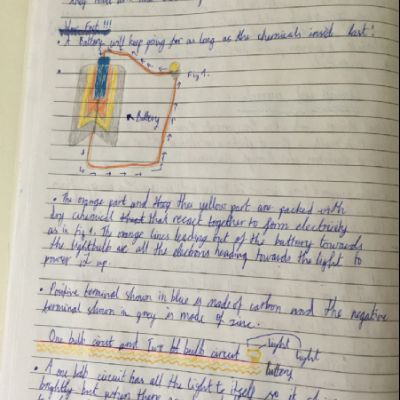 Fact!!!
• A Battery will keep going for as long as the chemicals inside last!
Fig 1.
Battery
• The orange part and the yellow part are packed with
dry chemical that reeact together to form electricity
as in Fig 1. The orange lines leading out of the battery towards
the lightbulb are all the electrons heading towards the light to
power it up.
• Positive terminal shown in blue is made of carbon and the negative
terminal shown in grey in made of zinc.
One bulb circut and Two bulb circuit
light
light
battery
• A one bulb circuit has all the light to itself so it
brightly but when there